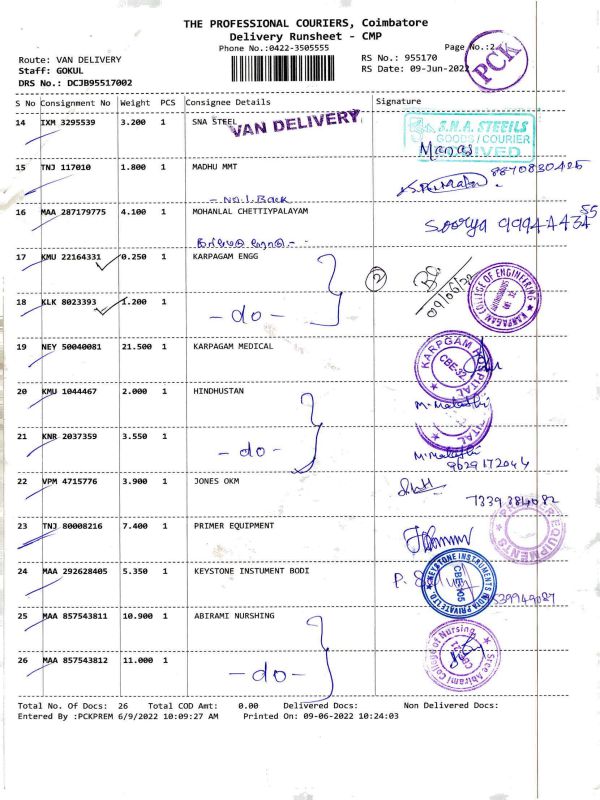 THE PROFESSIONAL COURIERS, Coimbatore
Delivery Runsheet - CMP
Phone No.:0422-3505555 Page No.:2
Route: VAN DELIVERY RS No.: 955170
Staff: GOKUL RS Date: 09-Jun-2022
DRS No.: DCJB95517002
PCK
S No Consignment No Weight PCS Consignee Details Signature
14 IXM 3295539 3.200 1 SNA STEEL
VAN DELIVERY
S.N.A. STEEILS
GOODS/COURIER
RECEIVED
15 TNJ 117010 1.800 1 MADHU MMT
8870830425
16 MAA 287179775 4.100 1 MOHANLAL CHETTIYPALAYAM
Soorya
17 KMU 22164331 0.250 1 KARPAGAM ENGG
2
09/06/22
KARPAGAM COLLEGE OF ENGINEERING
18 KLK 8023393 1.200 1
- do -
19 NEY 50040081 21.500 1 KARPGAM MEDICAL
KARPGAM HOSPITAL
CBE-32
20 KMU 1044467 2.000 1 HINDHUSTAN
21 KNR 2037359 3.550 1
- do -
9629172044
22 VPM 4715776 3.900 1 JONES OKM
7339384082
23 TNJ 80008216 7.400 1 PRIMER EQUIPMENT
PRIMER EQUIPMENTS
24 MAA 292628405 5.350 1 KEYSTONE INSTUMENT BODI
KEYSTONE INSTRUMENTS INDIA PRIVATE LTD
25 MAA 857543811 10.900 1 ABIRAMI NURSHING
Sree Abirami College of Nursing
26 MAA 857543812 11.000 1
- do -
Total No. Of Docs: 26 Total COD Amt: 0.00 Delivered Docs: Non Delivered Docs:
Entered By :PCKPREM 6/9/2022 10:09:27 AM Printed On: 09-06-2022 10:24:03